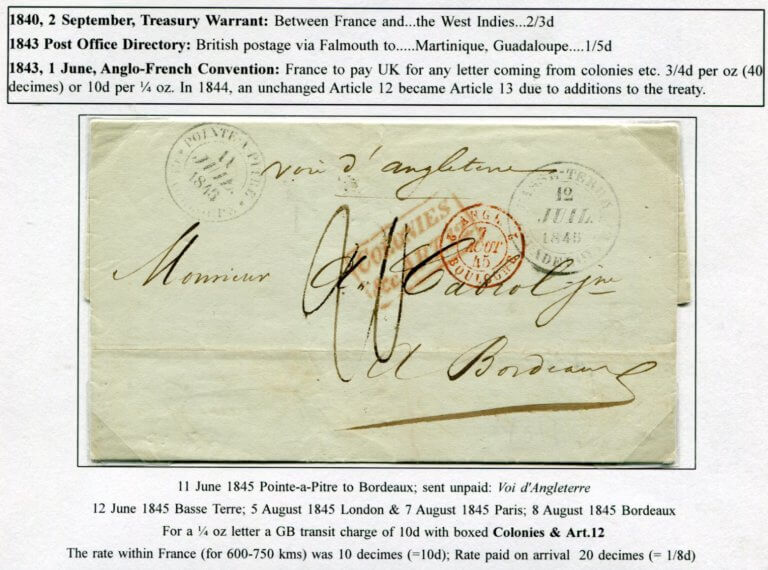 1840, 2 September, Treasury Warrant: Between France and...the West Indies...2/3d
1843 Post Office Directory: British postage via Falmouth to.....Martinique, Guadaloupe....1/5d
1843, 1 June, Anglo-French Convention: France to pay UK for any letter coming from colonies etc. 3/4d per oz (40
decimes) or 10d per ¼ oz. In 1844, an unchanged Article 12 became Article 13 due to additions to the treaty.
POINTE-A-PITRE
11
JUIL
1845
voie d'angleterre
BASSE-TERRE
12
JUIL
1845
COLONIES
ANGL.
7
AOUT
45
BOULOGNE
Monsieur
Cabrol jne
A Bordeaux
11 June 1845 Pointe-a-Pitre to Bordeaux; sent unpaid: Voi d'Angleterre
12 June 1845 Basse Terre; 5 August 1845 London & 7 August 1845 Paris; 8 August 1845 Bordeaux
For a ¼ oz letter a GB transit charge of 10d with boxed Colonies & Art.12
The rate within France (for 600-750 kms) was 10 decimes (=10d); Rate paid on arrival 20 decimes (= 1/8d)